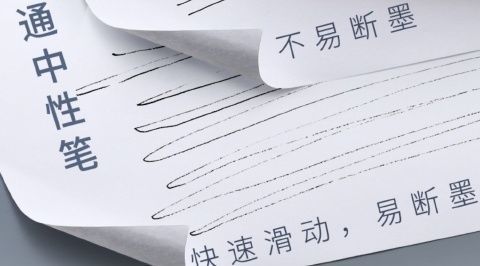 通中性笔
不易断墨
快速滑动，易断墨